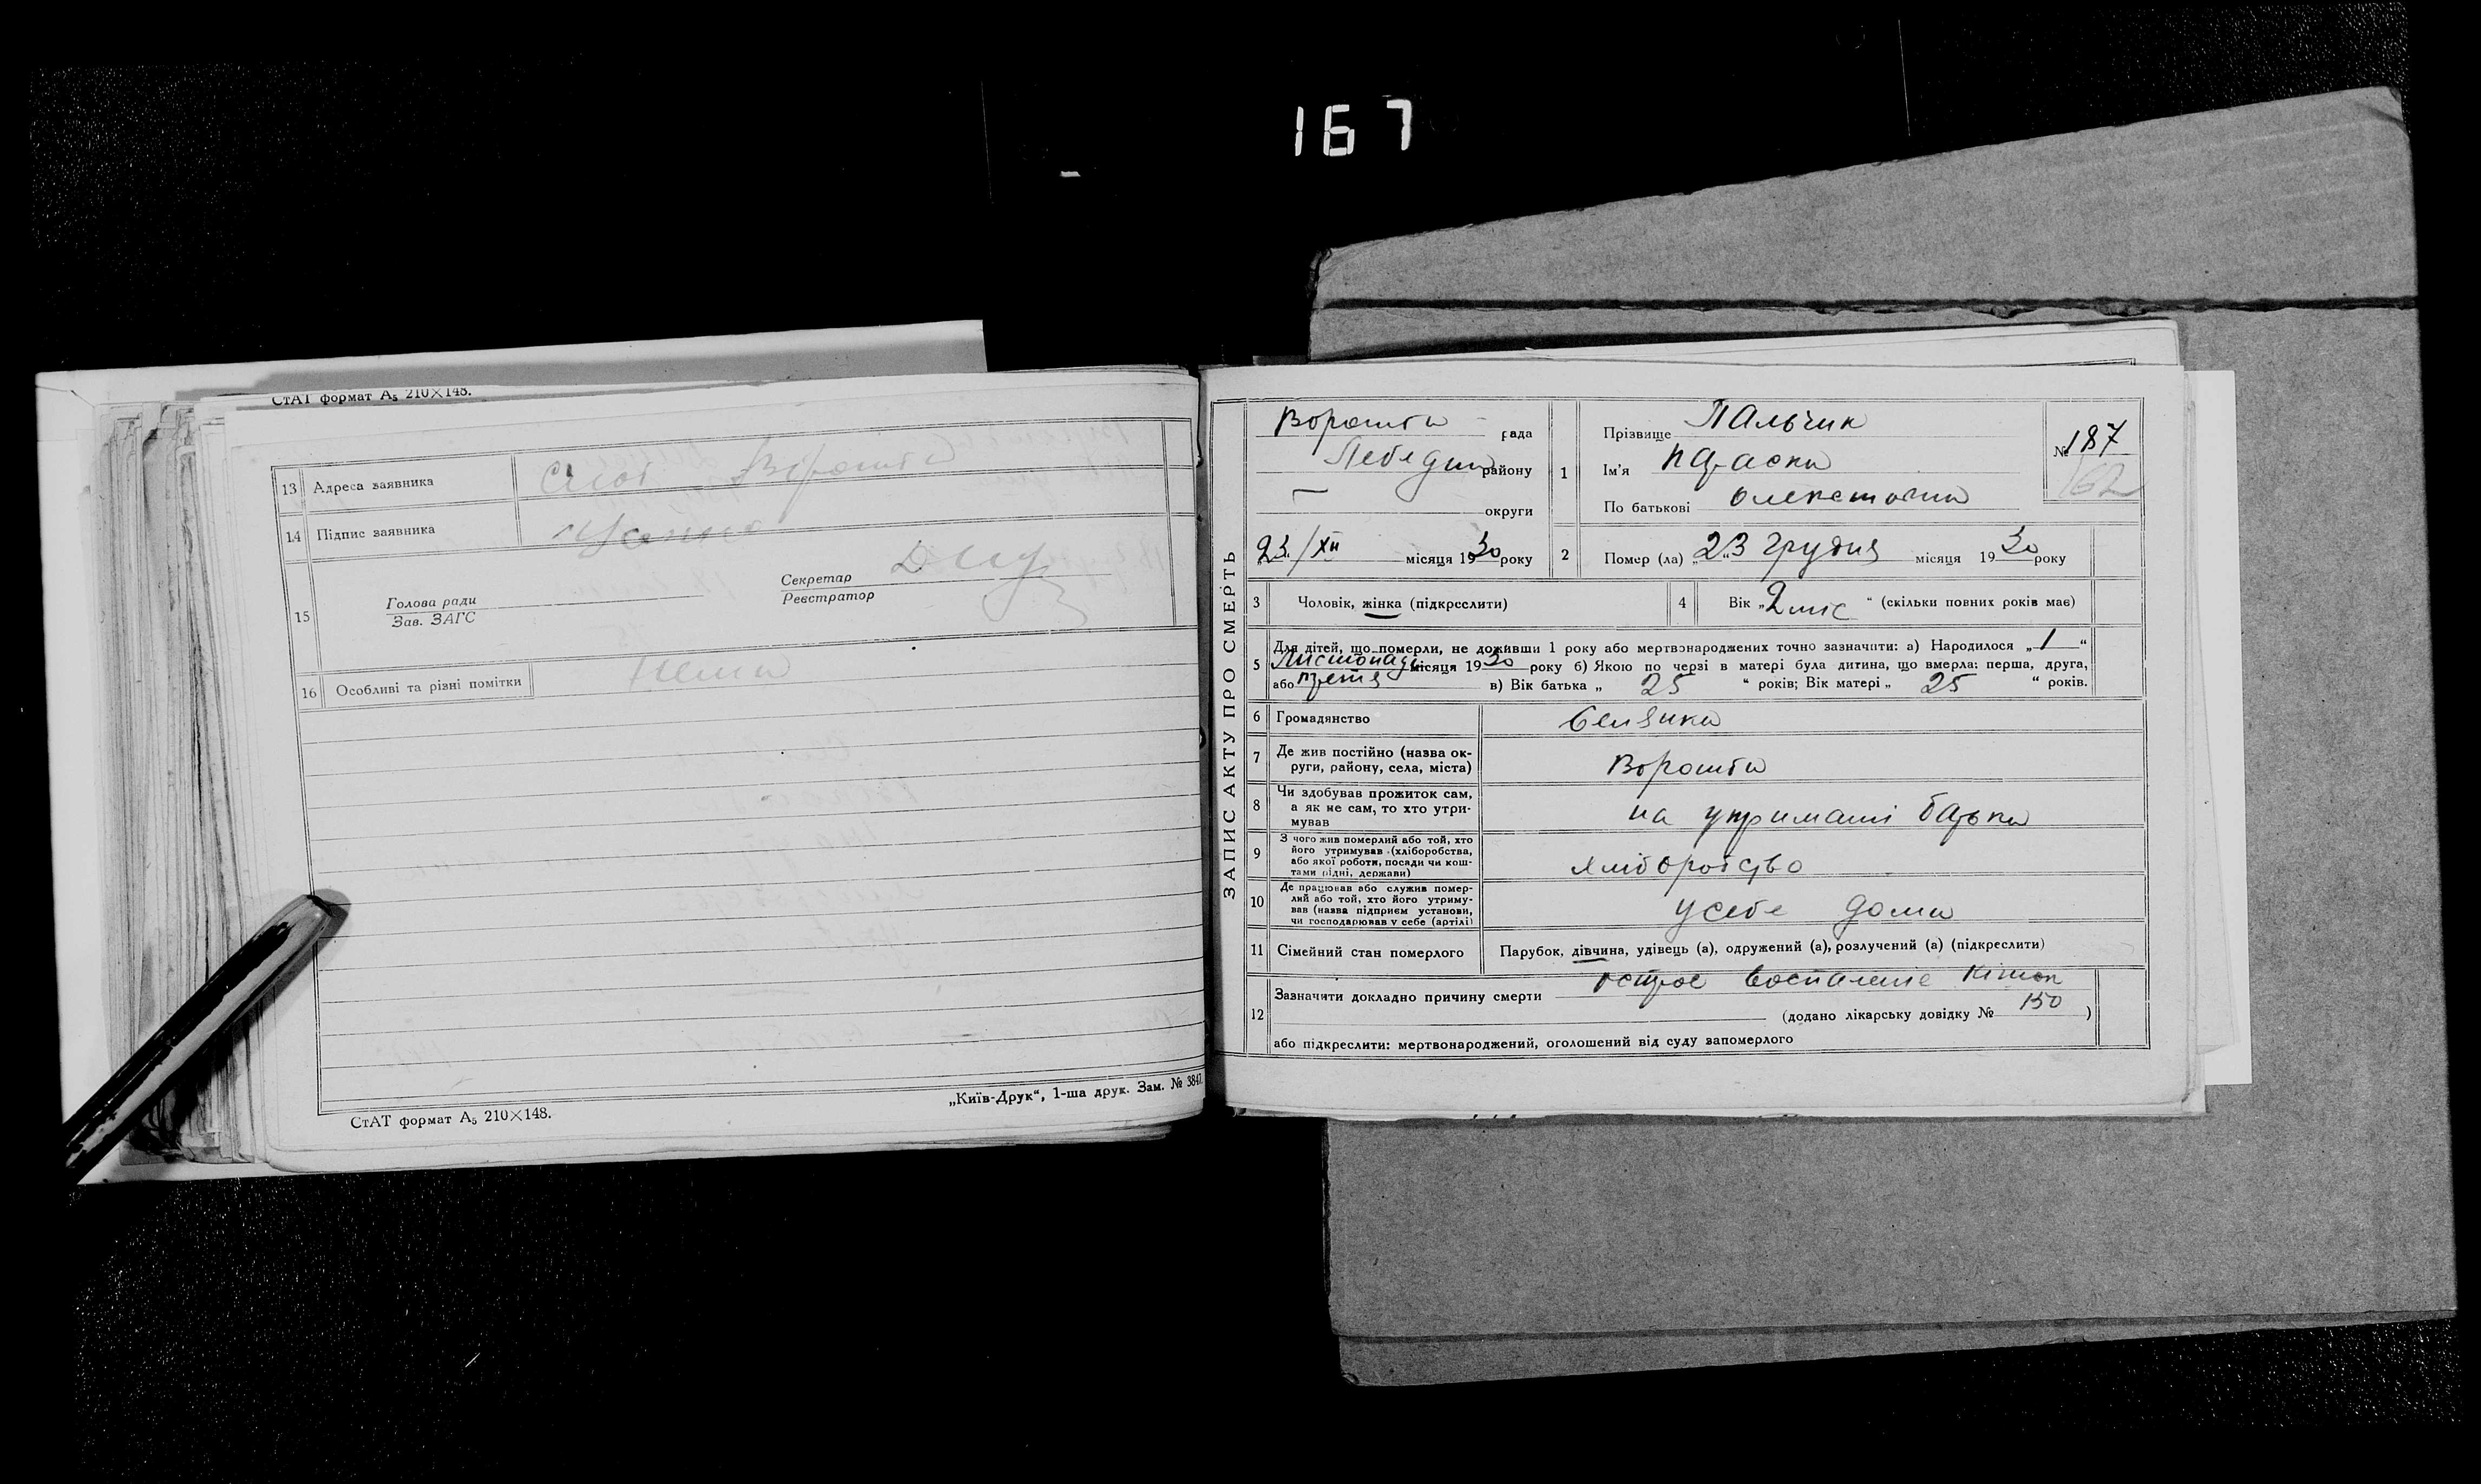 167
СтАТ формат А₅ 210×148.
13 Адреса заявника Слоб Ворожба
14 Підпис заявника
15 Голова ради
Зав. ЗАГС
Секретар
Реєстратор
16 Особливі та різні помітки Нема
„Київ-Друк“, 1-ша друк. Зам. № 3847.
СтАТ формат А₅ 210×148.
ЗАПИС АКТУ ПРО СМЕРТЬ
Ворожба рада
Лебедин району
— округи
„23“/XII місяця 1930 року
1 Прізвище Пальчик
Ім'я Параска
По батькові
№ 187
162
2 Помер (ла) „23 грудня місяця 1930 року
3 Чоловік, жінка (підкреслити)
4 Вік „2 міс“ (скільки повних років має)
5 Для дітей, що померли, не доживши 1 року або мертвонароджених точно зазначити: а) Народилося „1“
Листопада місяця 1930 року б) Якою по черзі в матері була дитина, що вмерла: перша, друга,
або третя в) Вік батька „25“ років; Вік матері „25“ років.
6 Громадянство
7 Де жив постійно (назва ок-
руги, району, села, міста) Ворожба
8 Чи здобував прожиток сам,
а як не сам, то хто утри-
мував на утриманні батька
9 З чого жив померлий або той, хто
його утримував (хліборобства,
або якої роботи, посади чи кош-
тами рідні, держави) хліборобство
10 Де працював або служив помер-
лий або той, хто його утриму-
вав (назва підприєм установи,
чи господарював у себе (артілі) у себе дома
11 Сімейний стан померлого Парубок, дівчина, удівець (а), одружений (а), розлучений (а) (підкреслити)
12 Зазначити докладно причину смерти острое воспаление кишок
(додано лікарську довідку № 150)
або підкреслити: мертвонароджений, оголошений від суду запомерлого